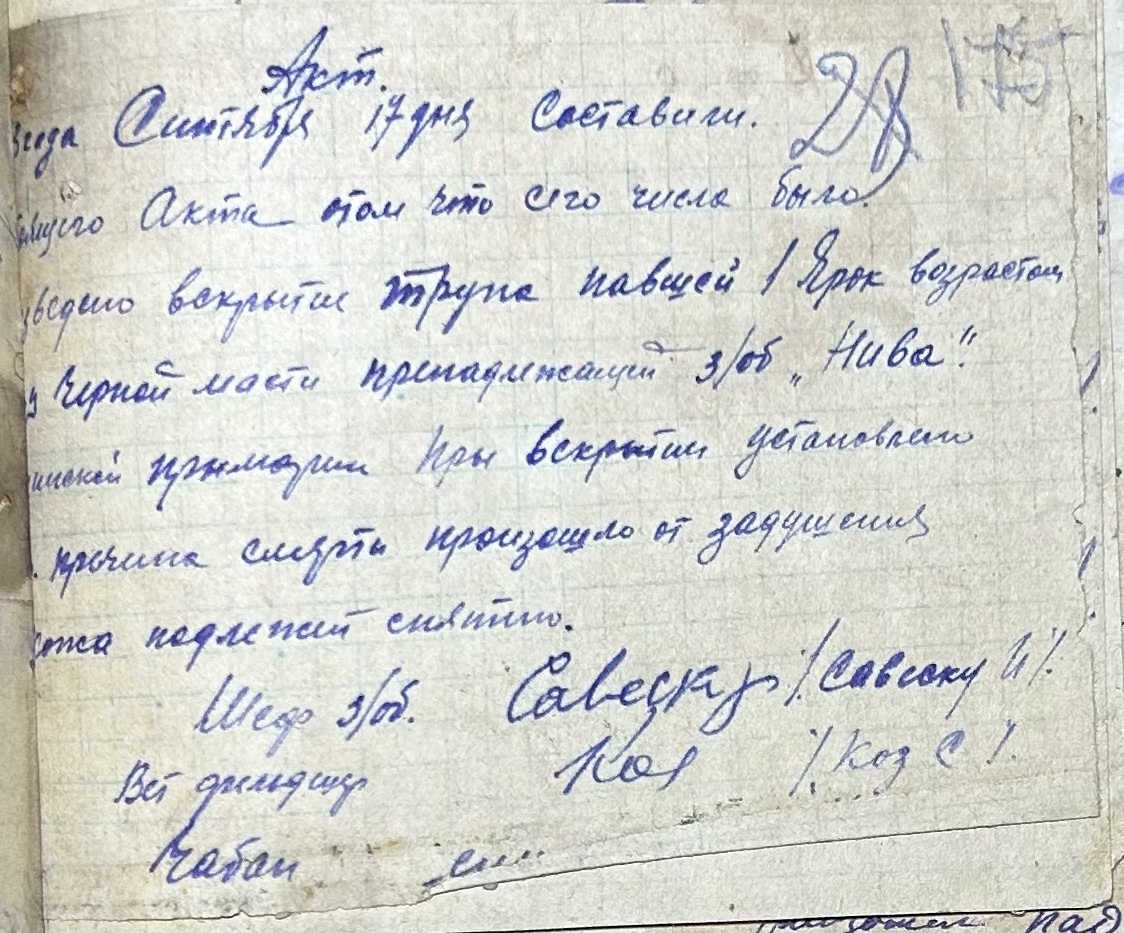 Акт.
175
28
3 года Сентября 17 дня Составили.
Акта отом что сего числа было
зведено вскрытие трупа павшей 1 Ярок возрастом
Черной масти пренадлежащей з/об „Нива"
примэрии При вскрытии установлено
причина смэрти произошло от задушения
кожа подлежит снятию.
Шеф з/об. Савеску /Савеску И/.
Вет фельдшер Коз /Коз С/.
Чабан
пад